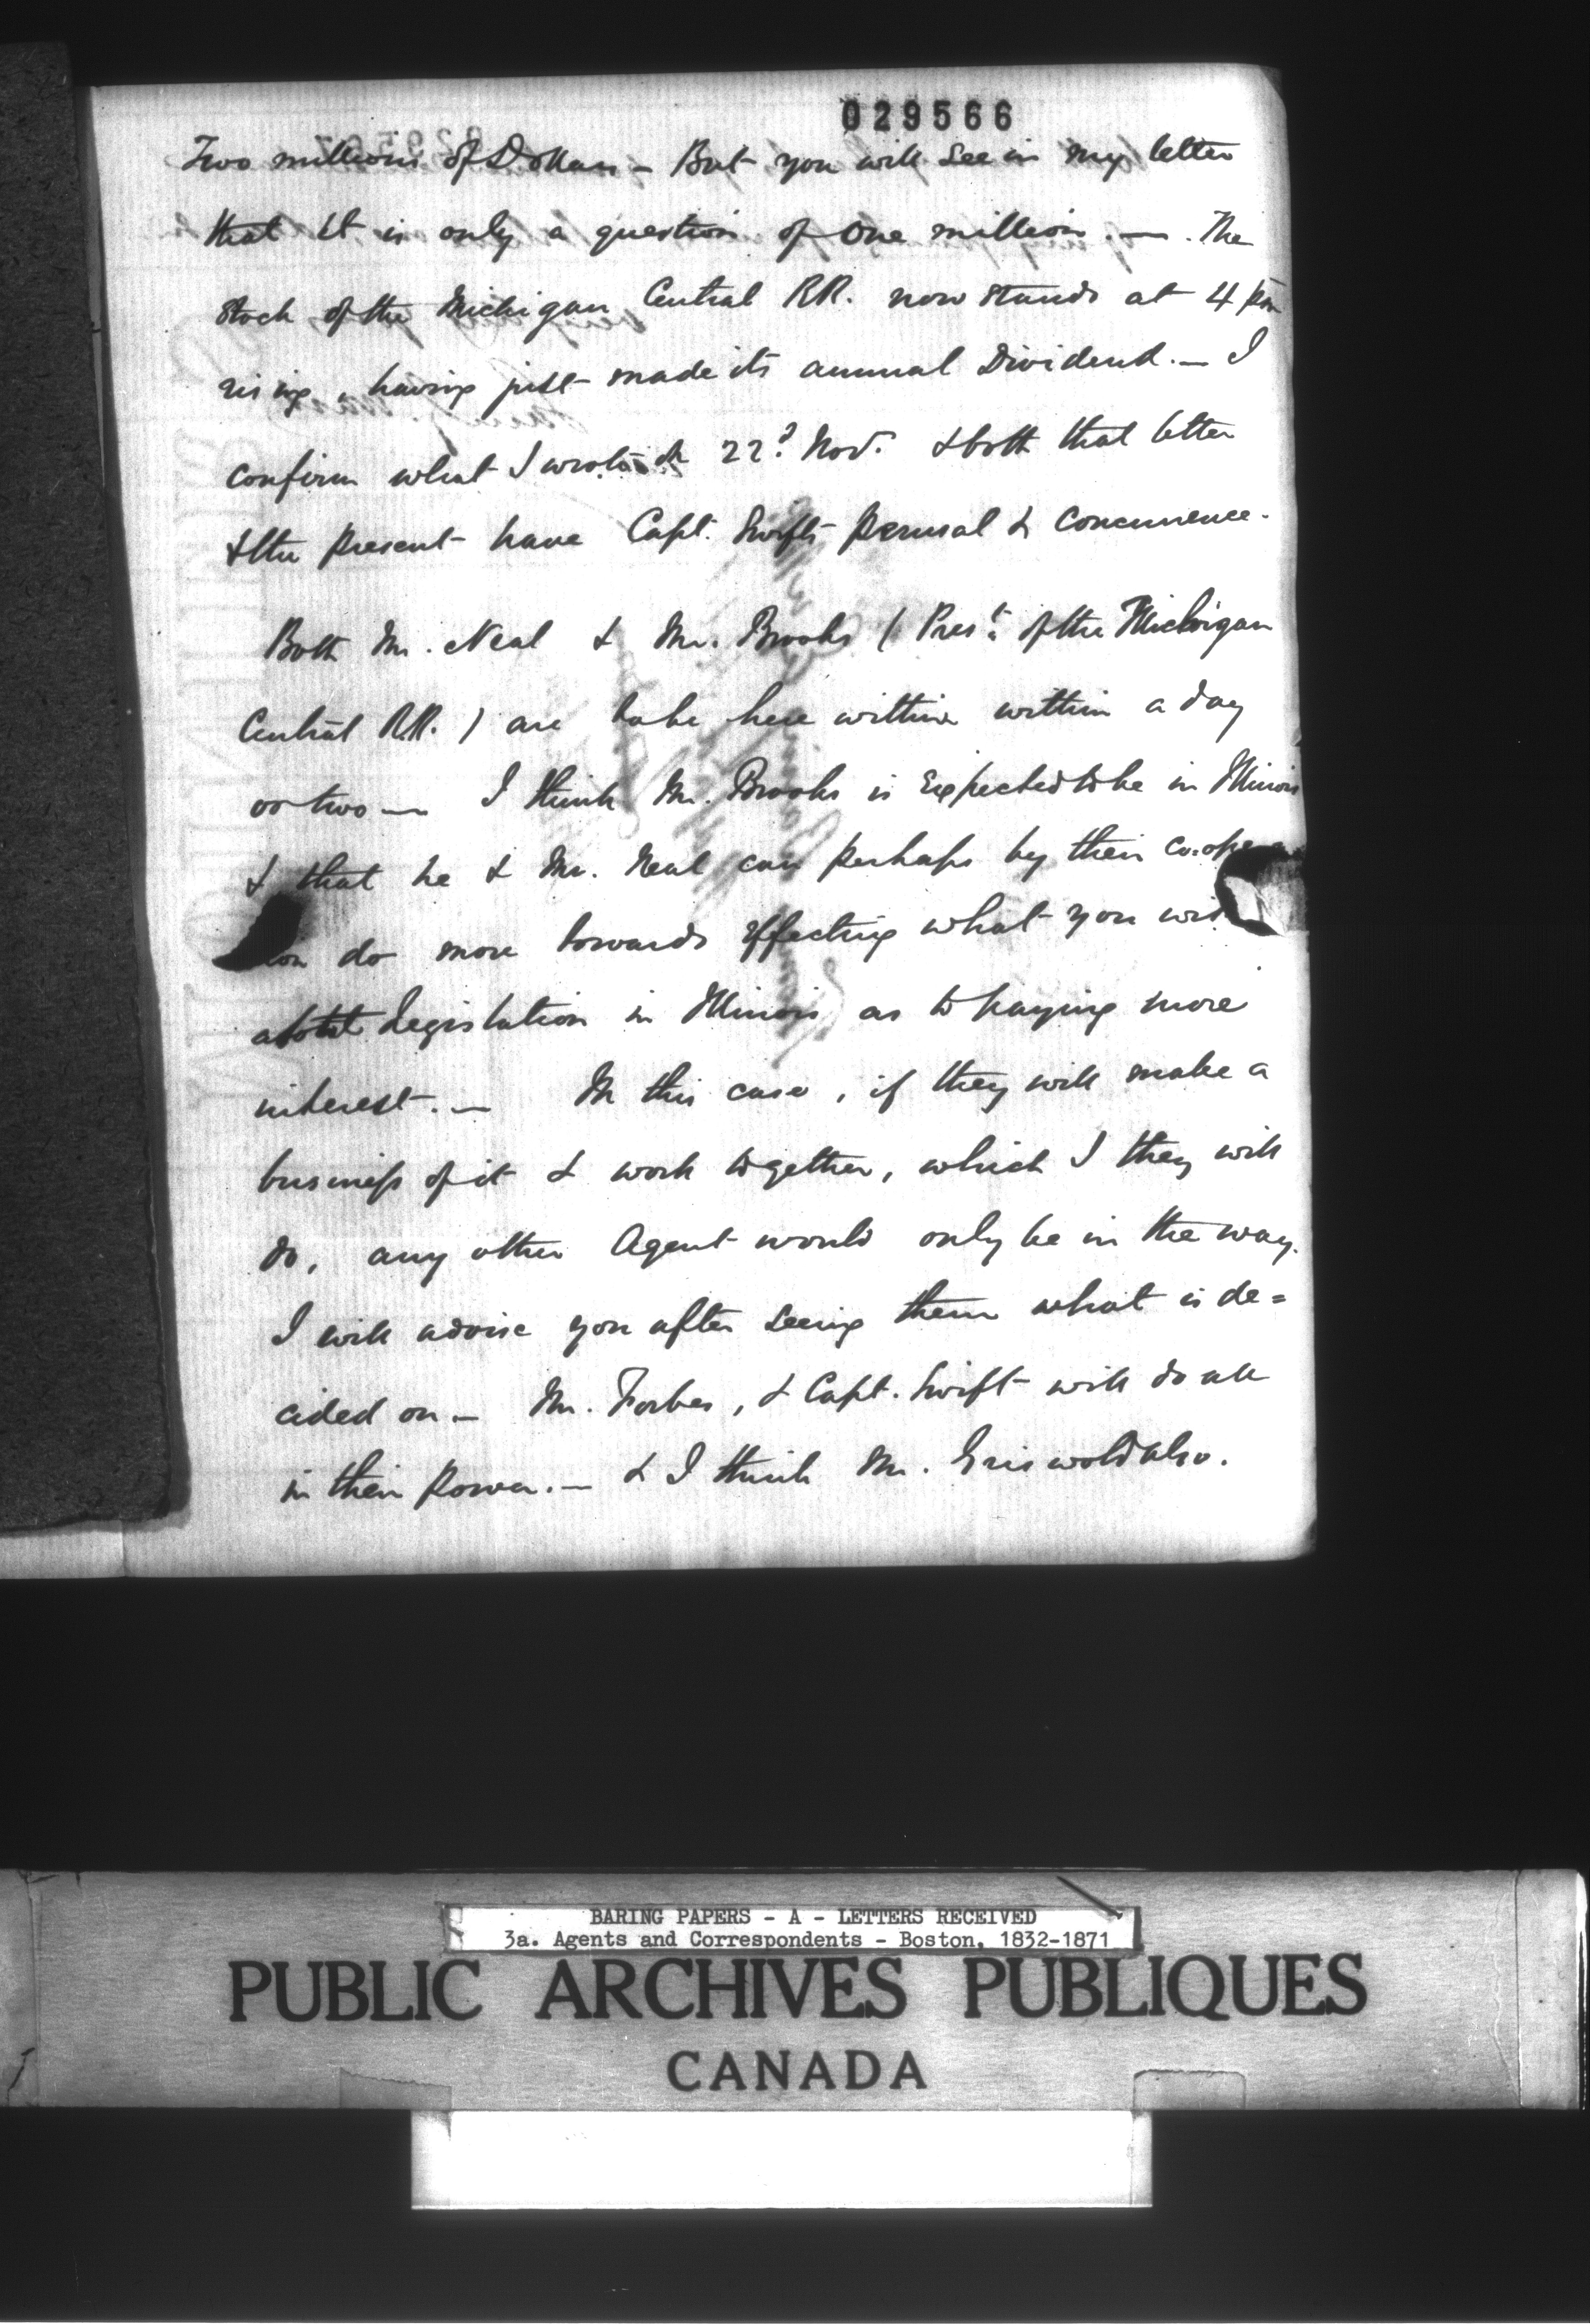 029566
Two millions of Dollars – But you will see in my letter
that it is only a question of one million. — . The
Stock of the Michigan Central RR. now stands at 4
rising, having just made its annual Dividend. — I
confirm what I wrote on 22d Nov. & both that letter
& the present have Capt. Swifts perusal & concurrence.
Both Mr. Neal & Mr. Brooks ( Prest. of the Michigan
Central RR. ) are to be here within within a day
or two — I think Mr. Brooks is expected to be in Illinois
& that he & Mr. Neal can perhaps by their co.opera
do more towards effecting what you wish
about Legislation in Illinois as to paying more
interest. — In this case, if they will make a
business of it & work together, which I they will
do, any other Agent would only be in the way.
I will advise you after seeing them what is de=
cided on — Mr. Forbes, & Capt. Swift will do all
in their power. — & I think Mr. Griswold also.
BARING PAPERS - A - LETTERS RECEIVED
3a. Agents and Correspondents - Boston, 1832-1871
PUBLIC ARCHIVES PUBLIQUES
CANADA